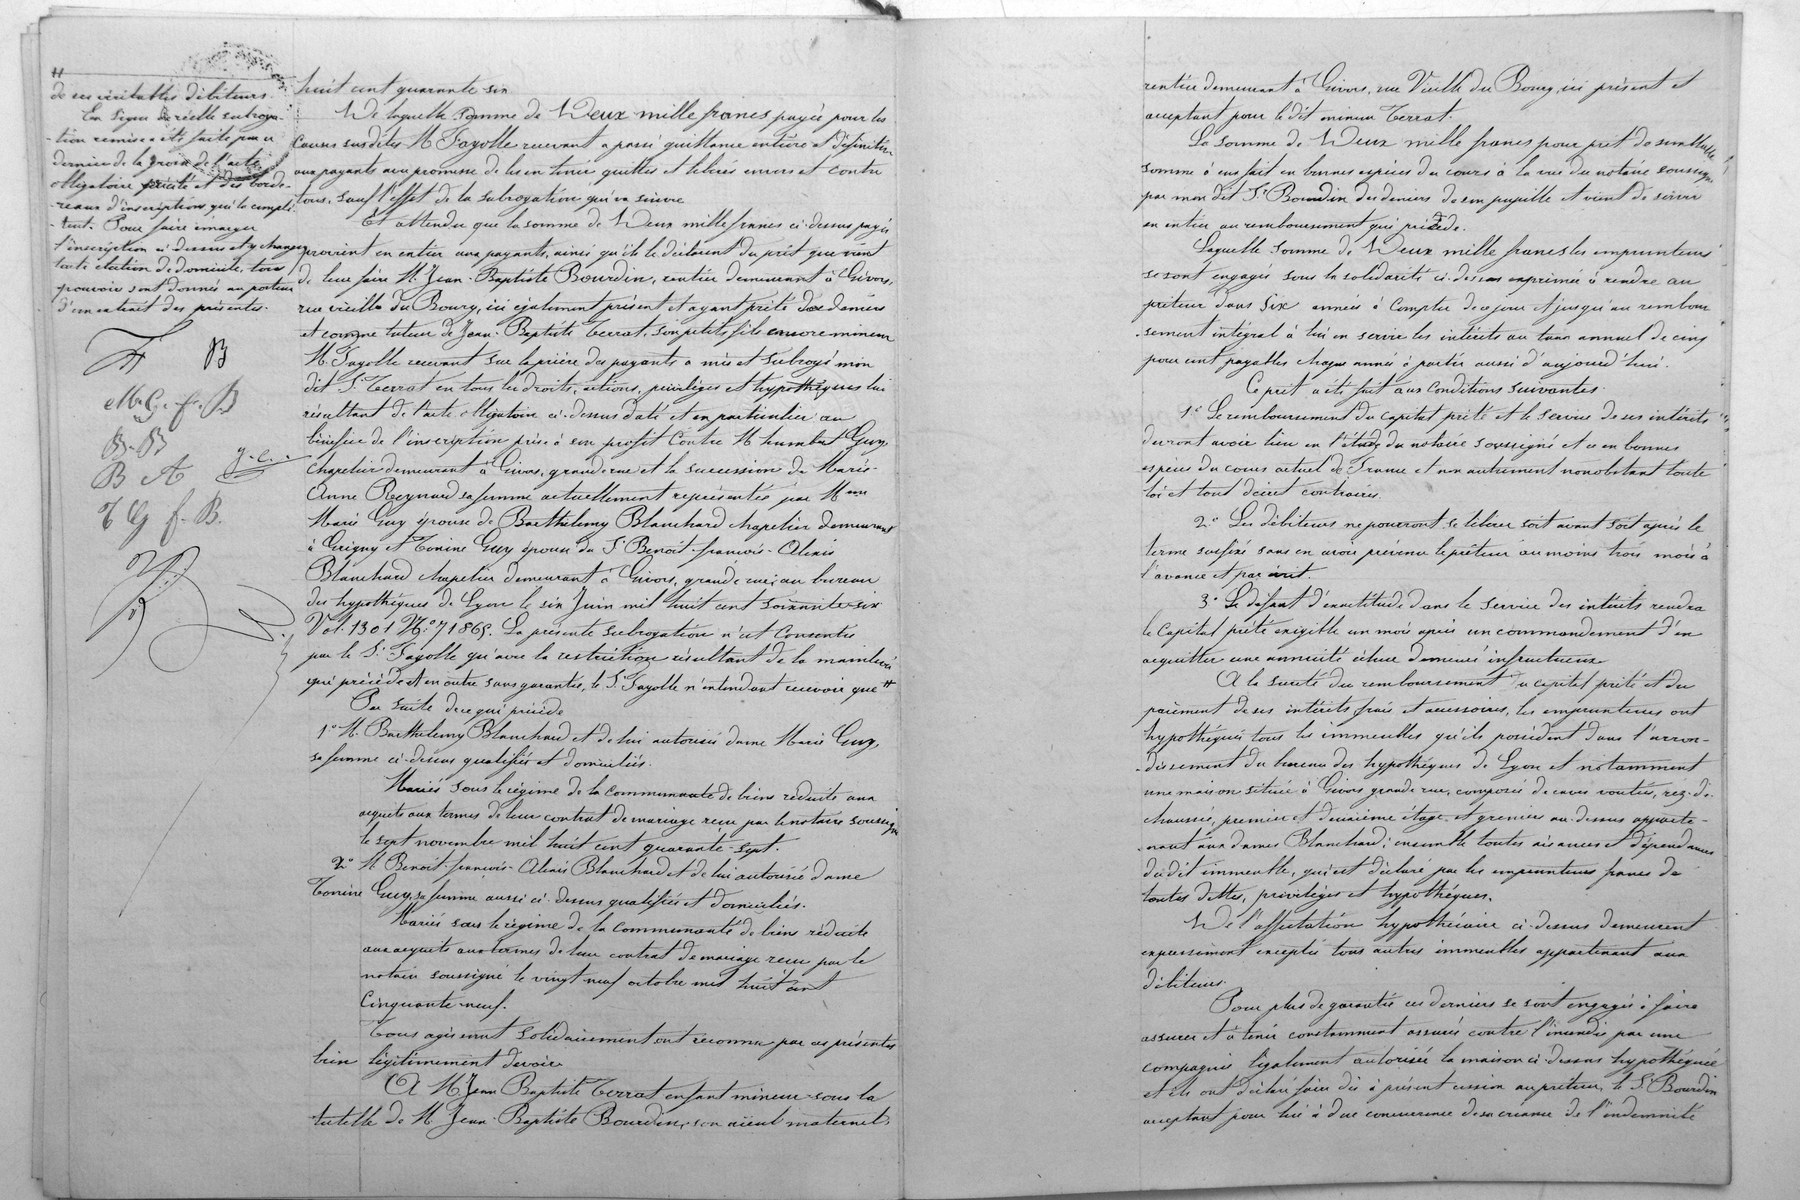 #
de ses véritables débiteurs.
En signe de réelle subroga-
-tion remise a été faite par ce
dernier de la grosse de l'acte
obligatoire précité et des borde-
-reaux d'inscriptions qui le complè-
-tent. Pour faire émarger
l'inscription ci-dessus et y changer
toute élection de domicile, tous
pouvoirs sont donnés au porteur
d'un extrait des présentes.
F B
M. G. f. B.
B. B
B A J. C.
T G f. B.
huit cent quarante six
De laquelle somme de Deux mille francs payée pour les
Causes susdites M. Fayolle recevant a passé quittance entière et définitive
aux payants avec promesse de les en tenir quittes et libérés envers et contre
tous, sauf l'effet de la subrogation qui va suivre
Et attendu que la somme de Deux mille francs ci-dessus payée
provient en entier aux payants, ainsi qu'ils le déclarent du prêt que vient
de leur faire M. Jean-Baptiste Bourdin, rentier demeurant à Givors,
rue vieille du Bourg, ici également présent et ayant prêté des deniers
et comme tuteur de Jean-Baptiste Terrat, son petit fils encore mineur
M. Fayolle recevant sur la prière des payants a mis et subrogé mon
dit S. Terrat en tous les droits, actions, privilèges et hypothèques lui
résultant de l'acte obligatoire ci-dessus daté et en particulier au
bénéfice de l'inscription prise à son profit Contre M. humbert Guy,
chapelier demeurant à Givors, grande rue et la succession de Marie-
Anne Reynard sa femme actuellement représentée par Mmes
Marie Guy épouse de Barthélemy Blanchard chapelier demeurant
à Grigny et Tonine Guy épouse du S. Benoit-françois-Alexis
Blanchard chapelier demeurant à Givors, grande rue; au bureau
des hypothèques de Lyon le six Juin mil huit cent soixante-six
Vol. 1301 N.o 71865. La présente subrogation n'est Consentie
par le S. Fayolle qu'avec la restriction résultant de la mainlevée
qui précède et en outre sans garantie, le S. Fayolle n'entendant recevoir que #
Par suite de ce qui précède
1.o M. Barthélemy Blanchard et de lui autorisée dame Marie Guy,
sa femme ci-dessus qualifiés et domiciliés.
Mariés sous le régime de la communauté de biens réduite aux
acquets aux termes de leur contrat de mariage reçu par le notaire soussigné
le sept novembre mil huit cent quarante-sept.
2.o M. Benoit-françois-Alexis Blanchard et de lui autorisée dame
Tonine Guy, sa femme aussi ci-dessus qualifiés et domiciliés.
Mariés sous le régime de la Communauté de biens réduite
aux acquets aux termes de leur contrat de mariage reçu par le
notaire soussigné le vingt neuf octobre mil huit cent
Cinquante-neuf.
Tous agissant solidairement ont reconnu par ces présentes
bien légitimement devoir
A M. Jean Baptiste Terrat enfant mineur sous la
tutelle de M. Jean-Baptiste Bourdin, son aïeul maternel,
rentier demeurant à Givors, rue Vieille du Bourg, ici présent et
acceptant pour le dit mineur Terrat.
La somme de Deux mille francs pour prêt de semblable
somme à eux fait en bonnes espèces du cours à la vue du notaire soussigné
par mon dit S. Bourdin des deniers de son pupille et vient de servir
en entier au remboursement qui précède.
Laquelle somme de Deux mille francs les emprunteurs
se sont engagés sous la solidarité ci-dessus exprimée à rendre au
prêteur dans six années à Compter de ce jour et jusqu'au rembour
-sement intégral à lui en servir les intérêts au taux annuel de cinq
pour cent payables chaque année à partir aussi d'aujourd'hui.
Ce prêt a été fait aux Conditions suivantes.
1.o Le remboursement du capital prêté et le service de ses intérêts
devront avoir lieu en l'étude du notaire soussigné et ce en bonnes
espèces du cours actuel de France et non autrement nonobstant toute
loi et tout décret contraires.
2.o Les débiteurs ne pourront se libérer soit avant soit après le
terme susfixé sans en avoir prévenu le prêteur au moins trois mois à
l'avance et par écrit.
3.o Le défaut d'exactitude dans le service des intérêts rendra
le capital prêté exigible un mois après un commandement d'en
acquitter une annuité échue demeuré infructueux
A la sureté du remboursement du capital prêté et du
paiement de ses intérêts frais et accessoires, les emprunteurs ont
hypothéqué tous les immeubles qu'ils possèdent dans l'arron-
-dissement du bureau des hypothèques de Lyon et notamment
une maison située à Givors grande rue, composée de caves voutées, rez-de-
chaussée, premier et deuxième étage et greniers au-dessus apparte-
-nant aux dames Blanchard; ensemble toutes aisances et dépendances
dudit immeuble, qui est déclaré par les emprunteurs franc de
toutes dettes, privilèges et hypothèques.
De l'affectation hypothécaire ci-dessus demeurent
expressément exceptés tous autres immeubles appartenant aux
débiteurs.
Pour plus de garantie ces derniers se sont engagés à faire
assurer et à tenir constamment assurée contre l'incendie par une
compagnie légalement autorisée la maison ci-dessus hypothéquée
et ils ont déclaré faire dès à présent cession au prêteur, le S. Bourdin
acceptant pour lui à due concurrence de sa créance de l'indemnité